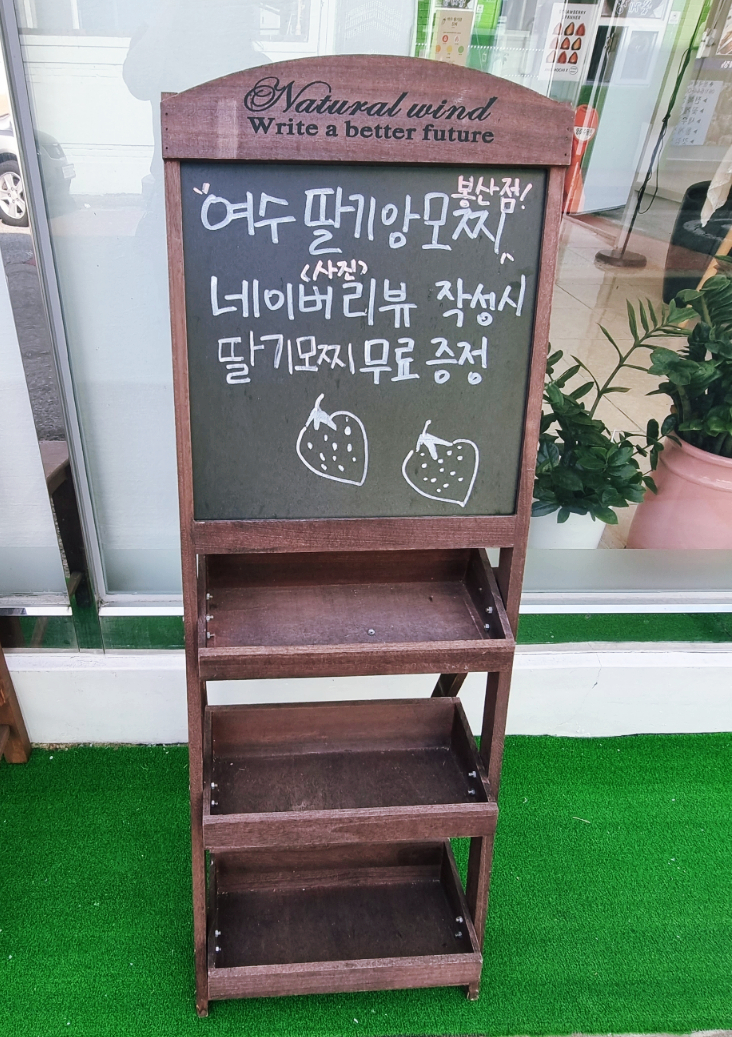 Natural wind
Write a better future
"여수 딸기앙모찌" 봉산점!
네이버 (사진) 리뷰 작성시
딸기모찌 무료 증정